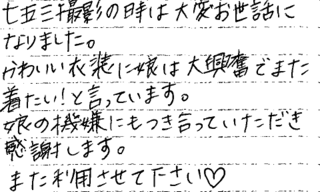 七五三撮影の時は大変お世話に
なりました。
かわいい衣装に娘は大興奮でまた
着たい!と言っています。
娘の機嫌にもつき言っていただき
感謝します。
また利用させて下さい♡